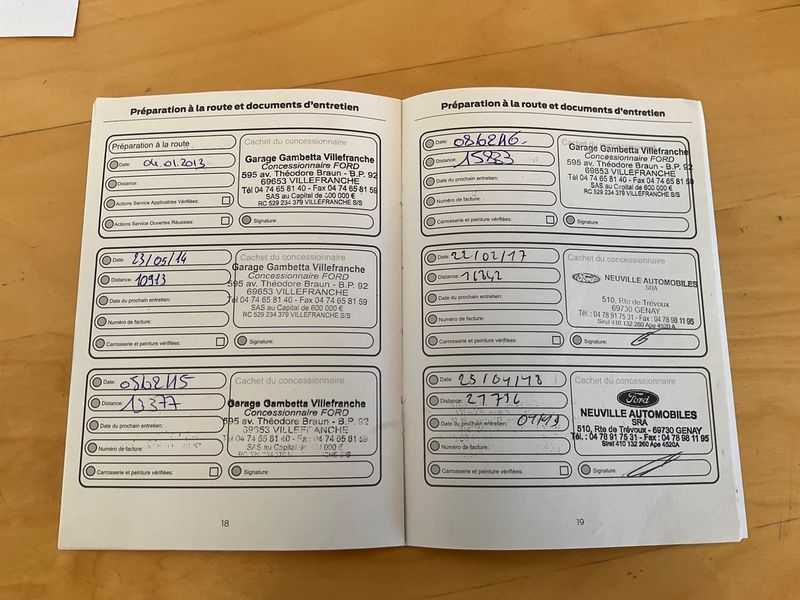 Préparation à la route et documents d'entretien
Préparation à la route
Date: 04.01.2013
Distance:
Actions Service Applicables Vérifiées:
Actions Service Ouvertes Réussies:
Cachet du concessionnaire
Garage Gambetta Villefranche
Concessionnaire FORD
595 av. Théodore Braun - B.P. 92
69653 VILLEFRANCHE
Tél 04 74 65 81 40 - Fax 04 74 65 81 59
SAS au Capital de 600 000 €
RC 529 234 379 VILLEFRANCHE S/S
Signature:
Date: 23/05/14
Distance: 10913
Date du prochain entretien:
Numéro de facture:
Carrosserie et peinture vérifiées:
Cachet du concessionnaire
Garage Gambetta Villefranche
Concessionnaire FORD
595 av. Théodore Braun - B.P. 92
69653 VILLEFRANCHE
Tél 04 74 65 81 40 - Fax 04 74 65 81 59
SAS au Capital de 600 000 €
RC 529 234 379 VILLEFRANCHE S/S
Signature:
Date:
Distance: 13377
Date du prochain entretien:
Numéro de facture:
Carrosserie et peinture vérifiées:
Cachet du concessionnaire
Garage Gambetta Villefranche
Concessionnaire FORD
595 av. Théodore Braun - B.P. 92
69653 VILLEFRANCHE
Tél 04 74 65 81 40 - Fax 04 74 65 81 59
SAS au Capital de 000 €
RC 529 234 379
Signature:
18
Préparation à la route et documents d'entretien
Date:
Distance: 15983
Date du prochain entretien:
Numéro de facture:
Carrosserie et peinture vérifiées:
Cachet du concessionnaire
Garage Gambetta Villefranche
Concessionnaire FORD
595 av. Théodore Braun - B.P. 92
69653 VILLEFRANCHE
Tél 04 74 65 81 40 - Fax 04 74 65 81 59
SAS au Capital de 600 000 €
RC 529 234 379 VILLEFRANCHE S/S
Signature:
Date: 22/02/17
Distance: 16842
Date du prochain entretien:
Numéro de facture:
Carrosserie et peinture vérifiées:
Cachet du concessionnaire
Ford NEUVILLE AUTOMOBILES
SRA
510, Rte de Trévoux
69730 GENAY
Tél. : 04 78 91 75 31 - Fax : 04 78 98 11 95
Siret 410 132 260 Ape 4520 A
Signature:
Date: 25/04/18
Distance: 21736
Date du prochain entretien: 04/19
Numéro de facture:
Carrosserie et peinture vérifiées:
Cachet du concessionnaire
Ford
NEUVILLE AUTOMOBILES
SRA
510, Rte de Trévoux - 69730 GENAY
Tél. : 04 78 91 75 31 - Fax : 04 78 98 11 95
Siret 410 132 260 Ape 4520A
Signature:
19